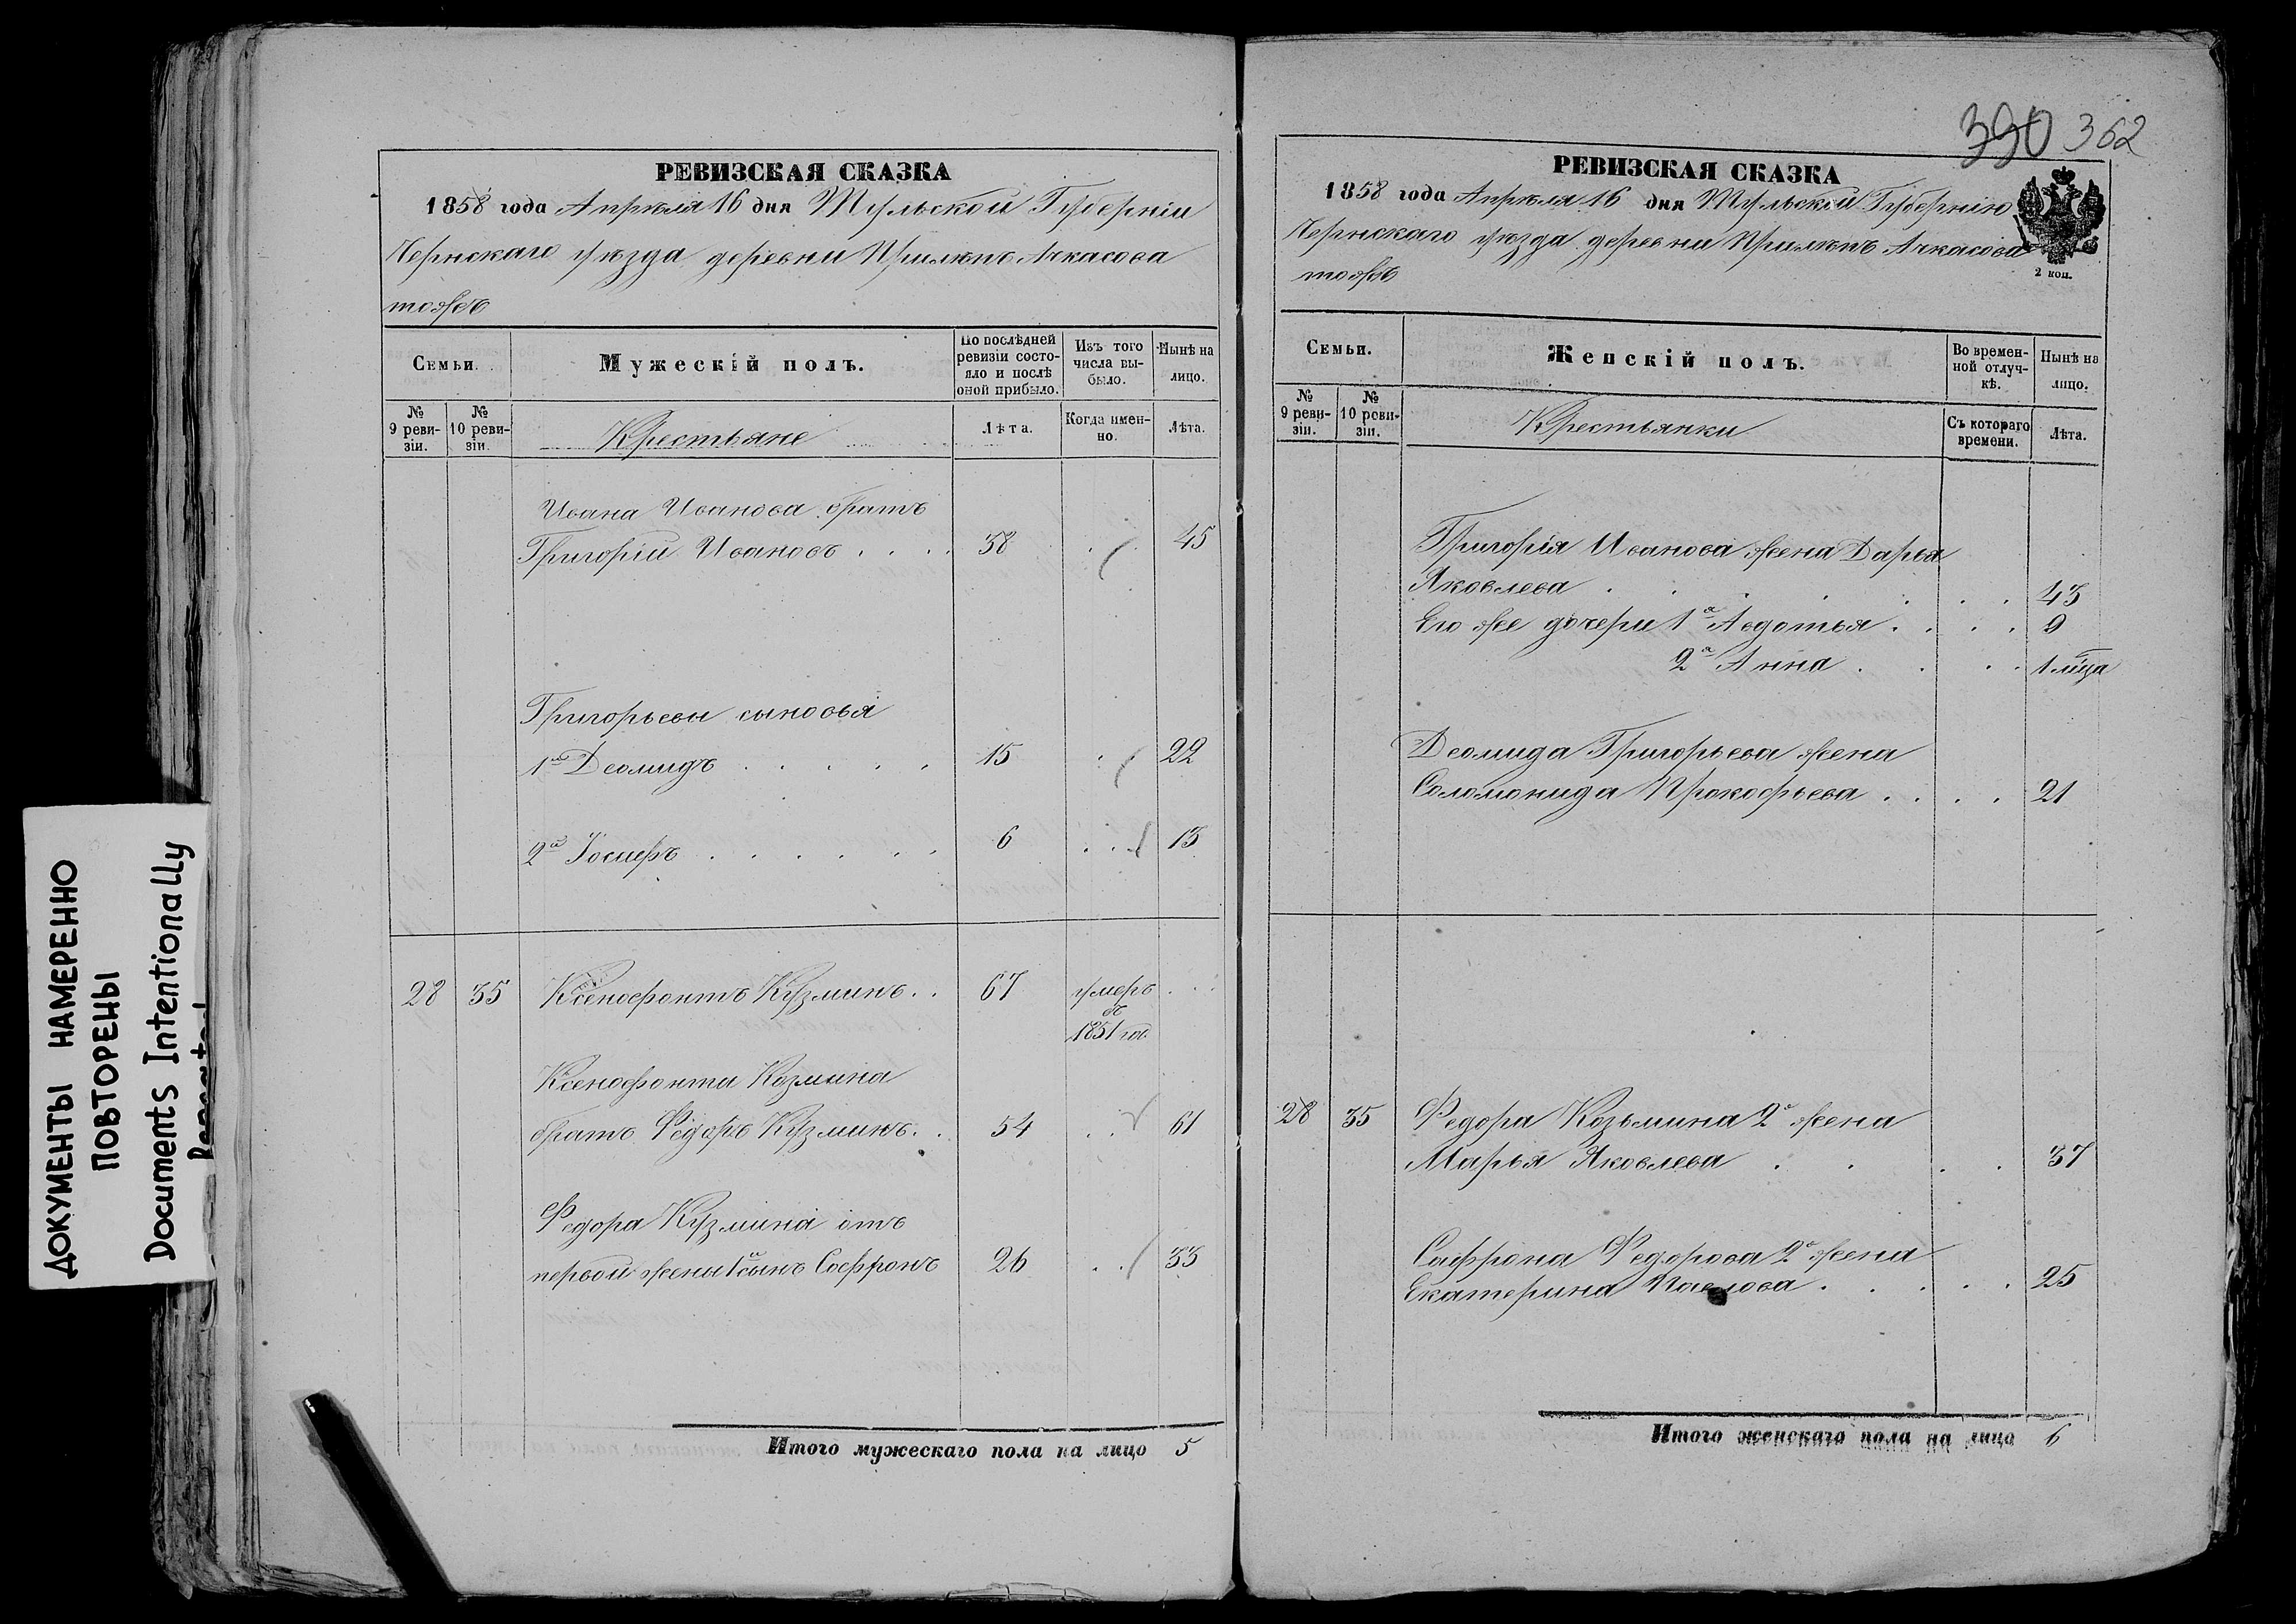 ДОКУМЕНТЫ НАМЕРЕННО
ПОВТОРЕНЫ
Documents Intentionally
РЕВИЗСКАЯ СКАЗКА
1858 года Апреля 16 дня Тульской Губерніи
Чернскаго уезда деревни Прилепъ Ачкасова
тожъ
Семьи.
Мужескій полъ.
По послѣдней ревизіи состояло и послѣ оной прибыло.
Изъ того числа выбыло.
Нынѣ на лицо.
№ 9 ревизіи.
№ 10 ревизіи.
Крестьяне
Лѣта.
Когда именно.
Лѣта.
Ивана Иванова братъ
Григорій Ивановъ . . . . 38 . . 45
Григорьевы сыновья
1й Деомидъ . . . . . 15 . 22
2й . . . . . . 6 . . 13
28 35 Ксенофонтъ Кузминъ . . 67 умеръ . . .
въ
1851 год
Ксенофонта Козмина
братъ Федоръ Кузминъ . . 54 . . 61
Федора Кузмина отъ
первой жены 1й сынъ Софронъ 26 . . 33
Итого мужескаго пола на лицо 5
390 362
РЕВИЗСКАЯ СКАЗКА
1858 года Апреля 16 дня Тульской Губерніи
Чернскаго уезда деревни Прилепъ Ачкасова
тожъ
2 коп.
Семьи.
Женскій полъ.
Во временной отлучкѣ.
Нынѣ на лицо.
№ 9 ревизіи.
№ 10 ревизіи.
Крестьянки
Съ котораго времени.
Лѣта.
Григорія Иванова жена Дарья
Яковлева . . . . . . . 43
Его же дочери 1а Авдотья . . . . 9
2а Анна . . . . 1 мца
Деомида Григорьева жена
Соломонида Прокофьева . . . . 21
28 35 Федора Козьмина 2я жена
Марья Яковлева . . . . 37
Софрона Федорова 2я жена
Екатерина Павлова . . . . . 25
Итого женскаго пола на лицо 6